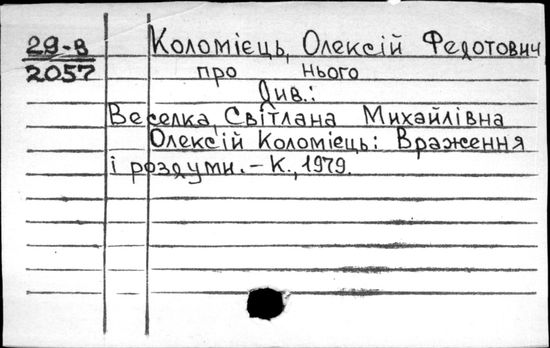 29-В
2057
Коломієць, Олексій Федотович
про нього
Див.:
Веселка, Світлана Михайлівна
Олексій Коломієць: Враження
і роздуми. – К., 1979.